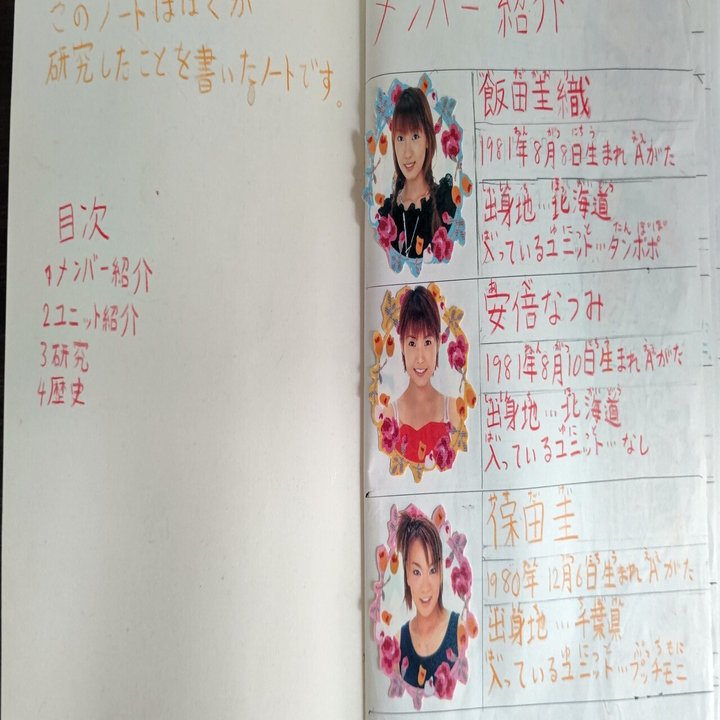 このノートはぼくが
研究したことを書いたノートです。
目次
1メンバー紹介
2ユニット紹介
3研究
4歴史
メンバー紹介
飯田圭織
1981年8月8日生まれ A がた
出身地…北海道
入っているユニット…タンポポ
安倍なつみ
1981年8月10日生まれ A がた
出身地…北海道
入っているユニット…なし
保田圭
1980年12月6日生まれ A がた
出身地…千葉県
入っているユニット…プッチモニ